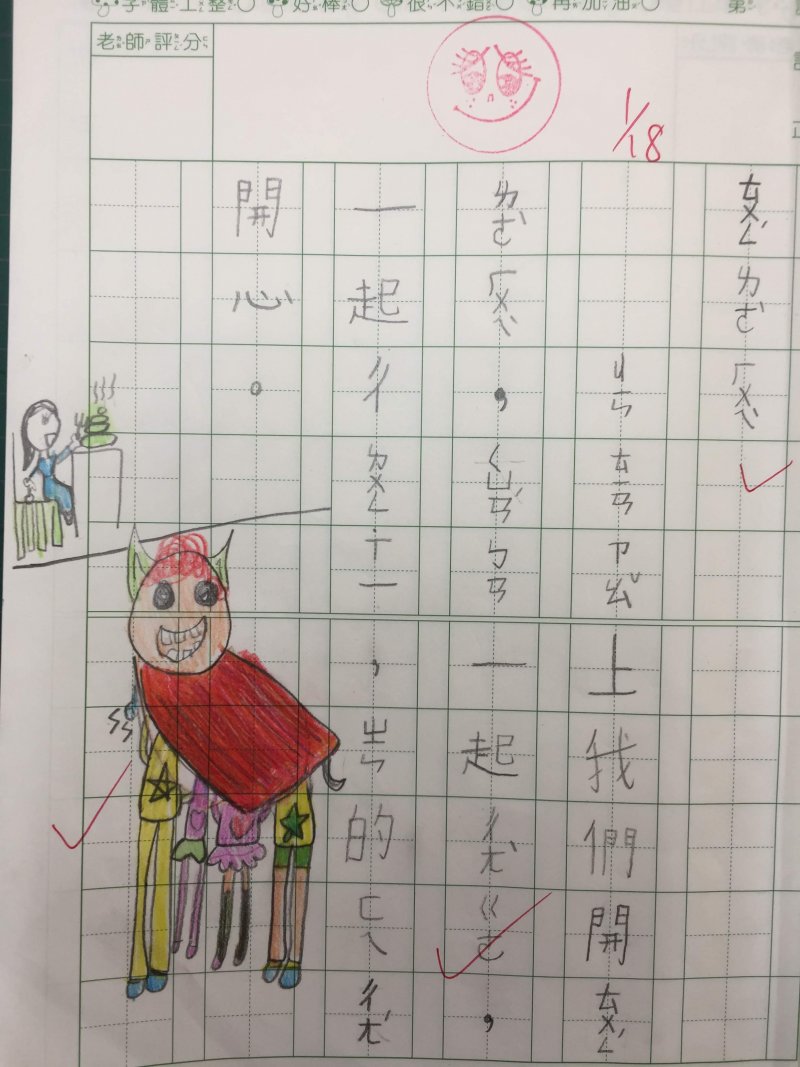 字體工整○ 好棒○ 很不錯○ 再加油○ 第
老師評分
1/18
ㄊㄨㄥˊㄌㄜˋㄏㄨㄟˋ
ㄐㄧㄣㄊㄧㄢㄗㄠˇ上我們開ㄊㄨㄥˊ
ㄌㄜˋㄏㄨㄟˋ，ㄑㄩㄢˊㄅㄢ一起ㄔㄤˋㄍㄜ，
一起ㄔㄉㄨㄥㄒㄧ，ㄓㄣ的ㄈㄟㄔㄤˊ
開心。